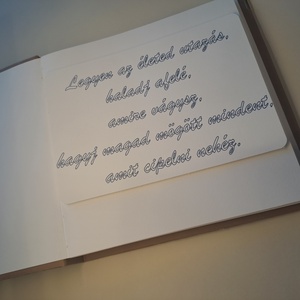 Legyen az életed utazás,
haladj afelé,
amire vágysz.
hagyj magad mögött mindent.
amit cipelni nehéz.